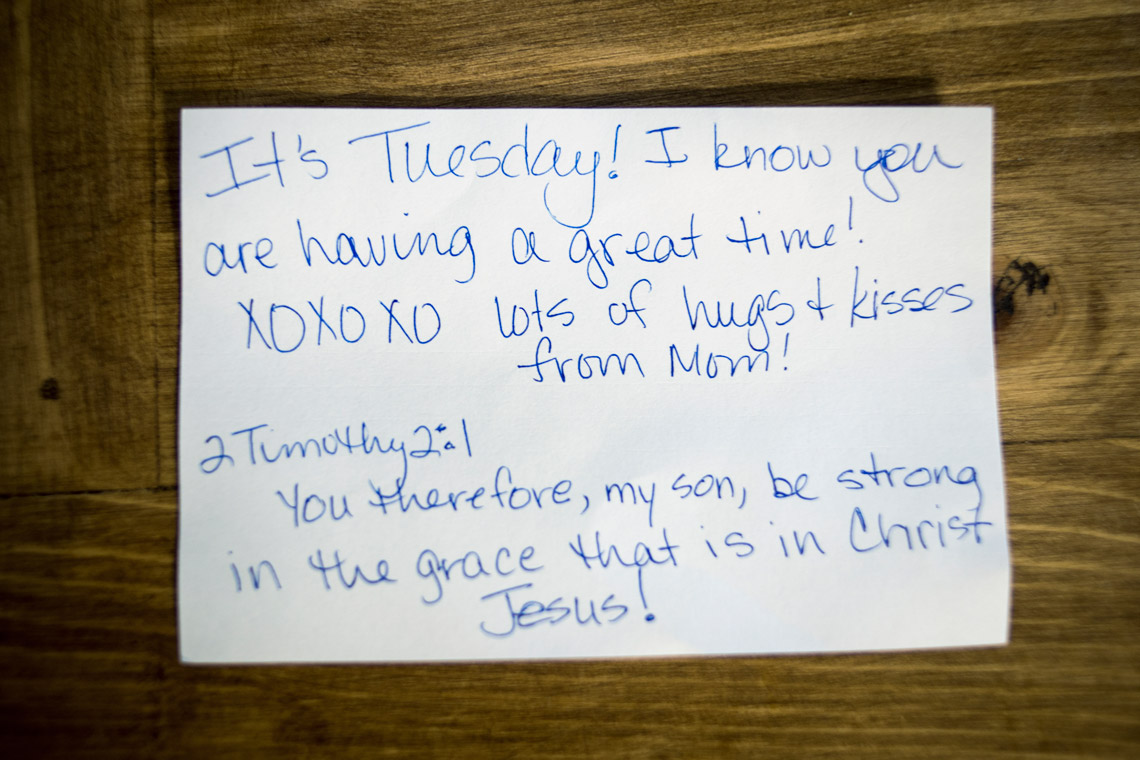 It's Tuesday! I know you
are having a great time!
XOXOXO lots of hugs & kisses
from Mom!
2 Timothy 2:1
You therefore, my son, be strong
in the grace that is in Christ
Jesus!